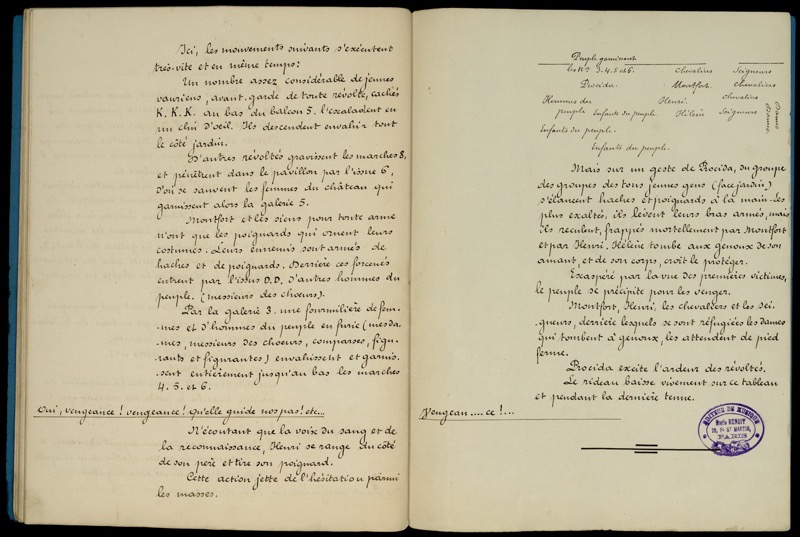 Ici, les mouvements suivants s'exécutent
très-vite et en même temps:
Un nombre assez considérable de jeunes
vauriens, avant-garde de toute révolte, cachés
K. K. K. au bas du balcon 5. l'escaladent en
un clin d'oeil. Ils descendent envahir tout
le côté jardin.
D'autres révoltés gravissent les marches 8,
et pénètrent dans le pavillon par l'issue 6,
d'où se sauvent les femmes du château qui
garnissent alors la galerie 5.
Montfort et les siens pour toute arme
n'ont que les poignards qui ornent leurs
costumes. Leurs ennemis sont armés de
haches et de poignards. Derrière ces forcenés
entrent par l'issue D.D. d'autres hommes du
peuple. (messieurs des chœurs).
Par la galerie 3. une fourmilière de fem-
-mes et d'hommes du peuple en furie (mesda-
-mes, messieurs des choeurs, comparses, figu-
-rants et figurantes) envahissent et garnis-
-sent entièrement jusqu'au bas les marches
4. 5. et 6.
Oui, vengeance! vengeance! Qu'elle guide nos pas! etc...
N'écoutant que la voix du sang et de
la reconnaissance, Henri se range du côté
de son père et tire son poignard.
Cette action jette de l'hésitation parmi
les masses.
Peuple garnissent
les Nos 3. 4. 5 et 6. Chevaliers Seigneurs
Procida. Montfort. Chevaliers
Hommes du Henri. Chevaliers
peuple Enfants du peuple. Hélène Seigneurs
Dames
Dames
Enfants du peuple.
Enfants du peuple.
Mais sur un geste de Procida, du groupe
des groupes des tous jeunes gens (face jardin)
s'élancent haches et poignards à la main les
plus exaltés, ils lèvent leurs bras armés, mais
ils reculent, frappés mortellement par Montfort
et par Henri. Hélène tombe aux genoux de son
amant, et de son corps, croit le protéger.
Exaspéré par la vue des premières victimes,
le peuple se précipite pour les venger.
Montfort, Henri, les chevaliers et les sei-
-gneurs, derrière lesquels se sont réfugiées les dames
qui tombent à genoux, les attendent de pied
ferme.
Procida excite l'ardeur des révoltés.
Le rideau baisse vivement sur ce tableau
et pendant la dernière tenue.
Vengean.....ce!...
EDITEUR DE MUSIQUE
BENOIT
ST MARTIN,
PARIS